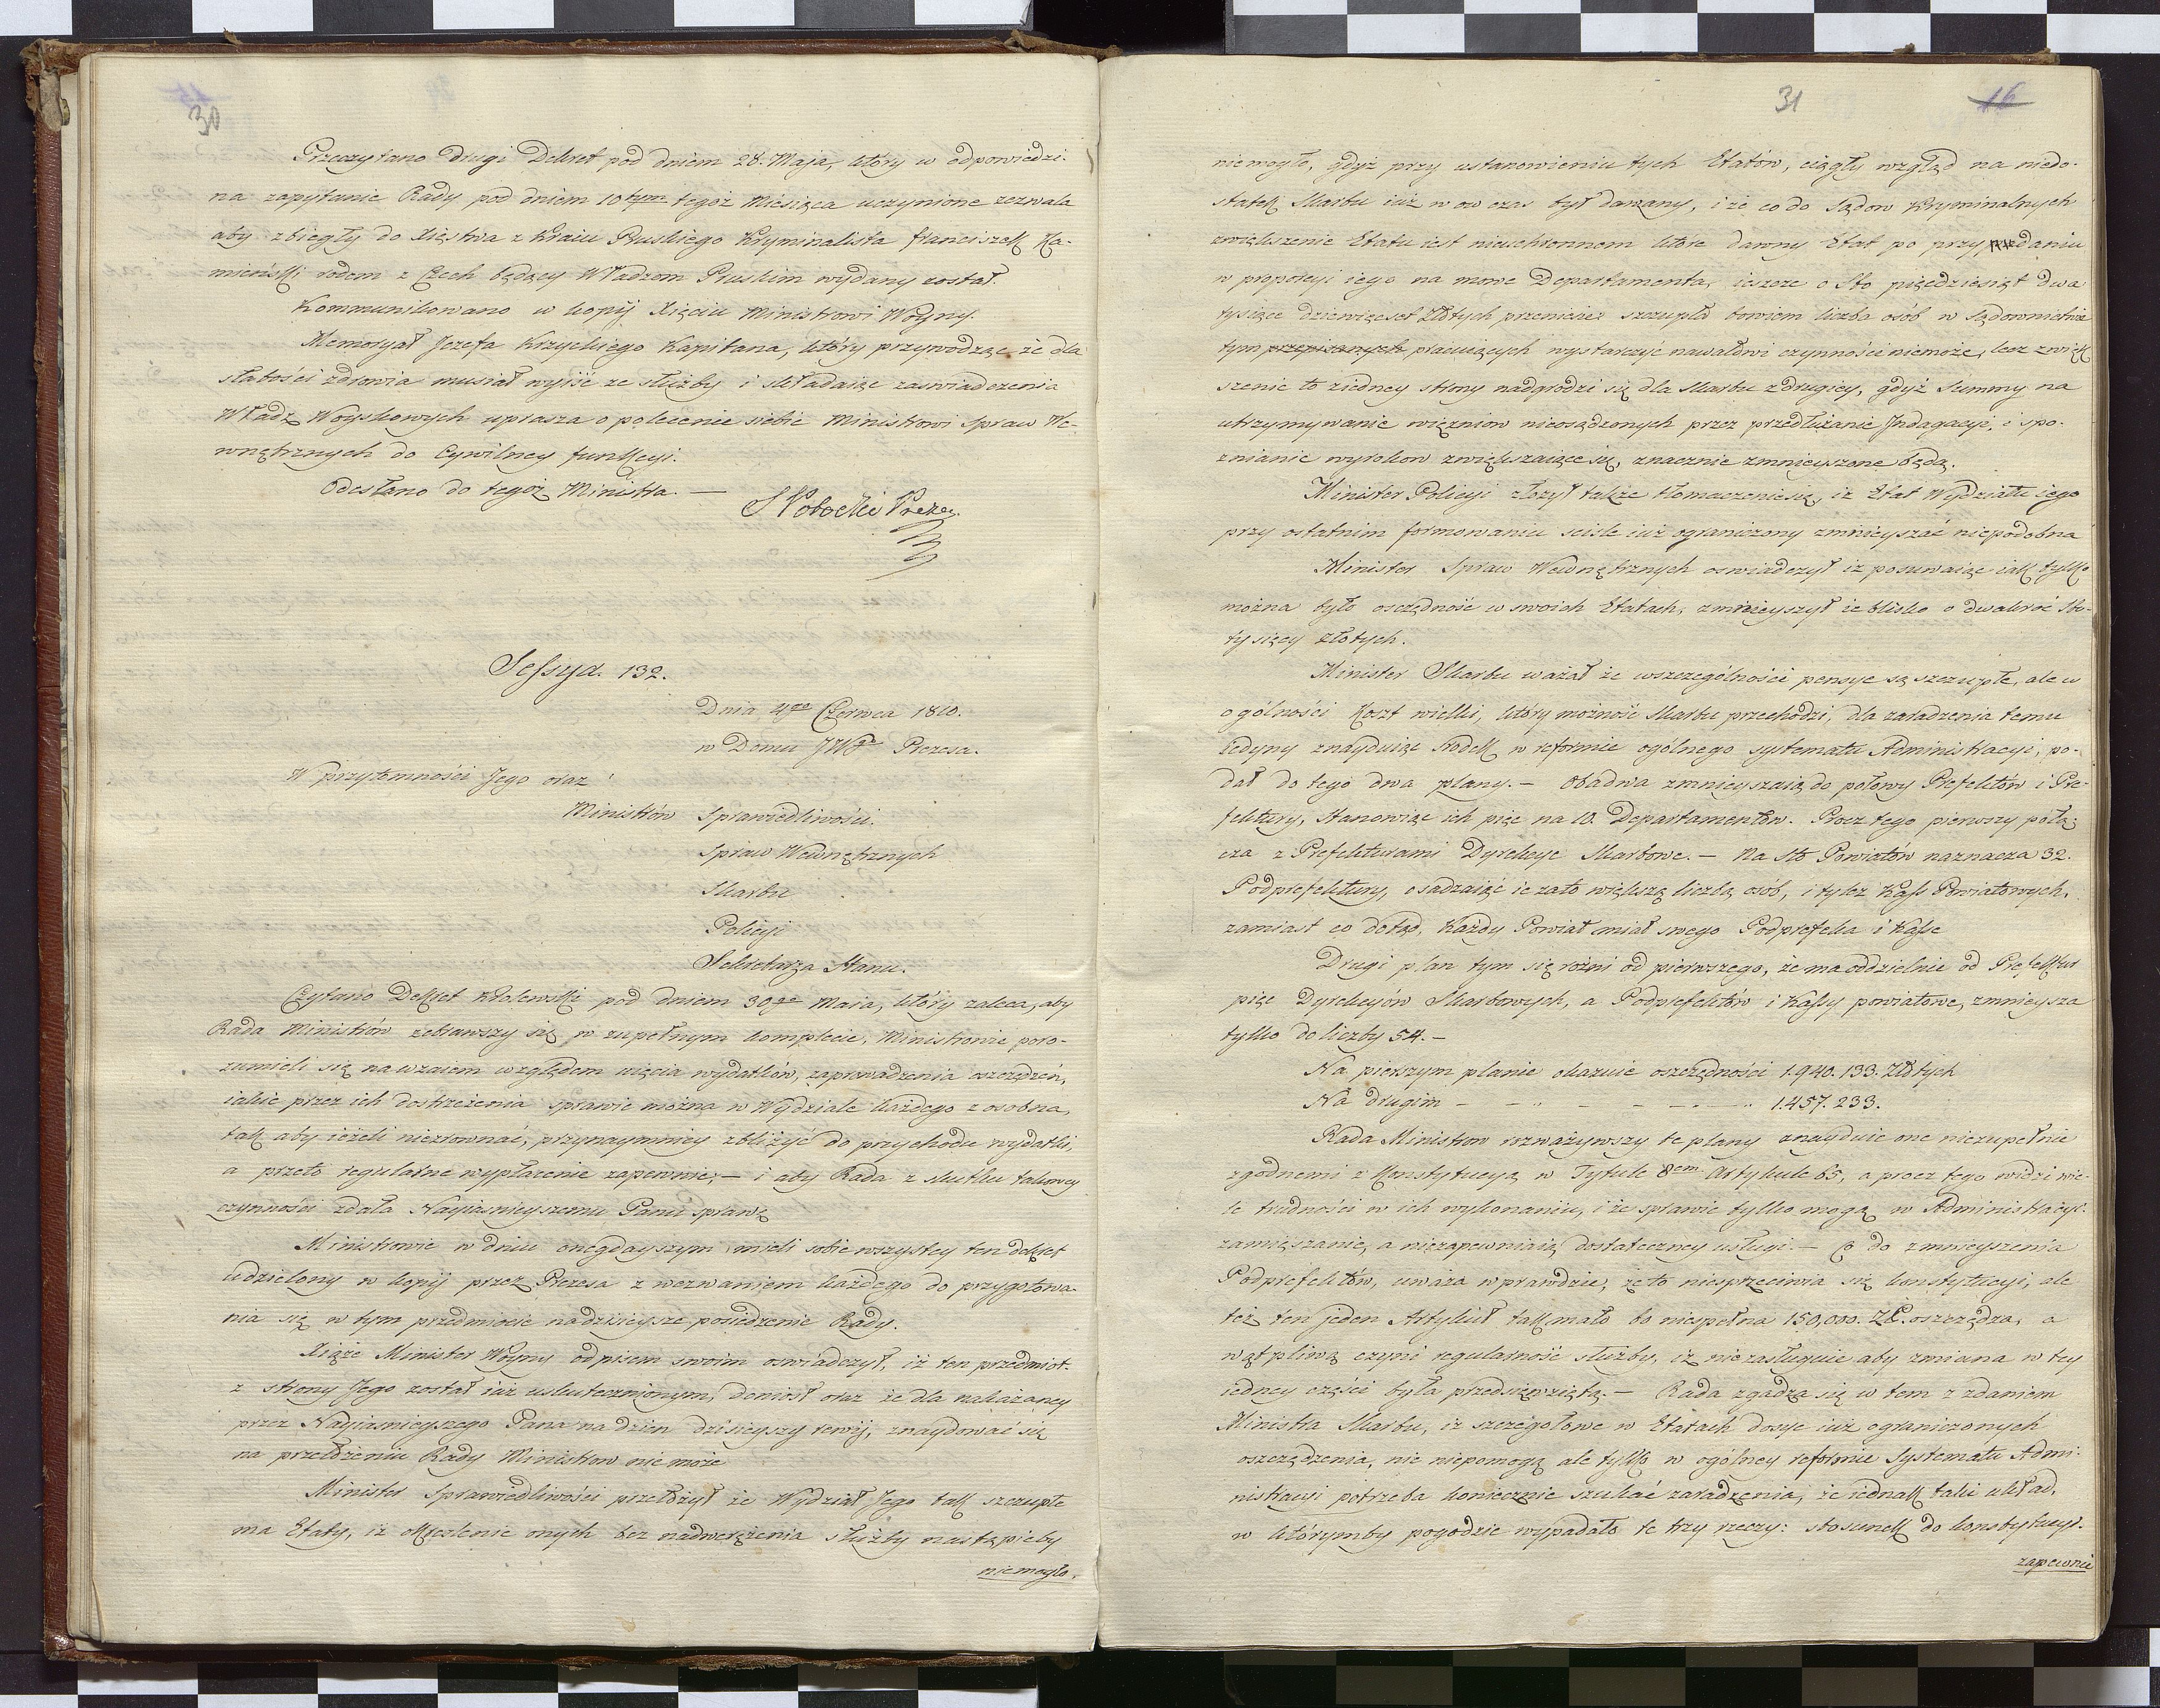 30
Przeczytano drugi Dekret pod dniem 28. Maja, który w odpowiedzi
na zapytanie Rady pod dniem 10tym tegoż Miesiąca uczynione zezwala
aby zbiegły do Xięstwa z Kraiu Pruskiego Kryminalista franciszek Ka-
mieński rodem z Czech będący Władzom Pruskim wydany został.
Kommunikowano w kopij Xięciu Ministrowi Woyny.
Memoryał Jozefa Krzyckiego Kapitana, który przywodząc że dla
słabości zdrowia musiał wyiść ze służby i składaiąc zaswiadczenia
Władz Woyskowych uprasza o polecenie siebie Ministrowi Spraw We-
wnętrznych do Cywilney funkcyi.
Odesłano do tegoż Ministra. —
S Potocki Prezes
Sessya. 132.
Dnia 4go Czerwca 1810.
w Domu JWgo Prezesa.
W przytomności Jego oraz
Ministrów Sprawiedliwości.
Spraw Wewnętrznych
Skarbu
Policyi
Sekretarza Stanu.
Czytano Dekret Krolewski pod dniem 30go Maia, który zaleca, aby
Rada Ministrów zebrawszy się w zupełnym komplecie, Ministrowie poro-
zumieli się nawzaiem względem uięcia wydatków, zaprowadzenia oszczędzeń,
iakie przez ich dostrzeżenia sprawie można w Wydziale każdego z osobna,
tak aby ieżeli niezrownać, przynaymniey zbliżyć do przychodu wydatki,
a przeto regularne wypłacenie zapewnić; — i aby Rada z skutku takowey
czynności zdała Nayiasnieyszemu Panu sprawę
Ministrowie w dniu onegdayszym mieli sobie wszyscy ten dekret
udzielony w kopij przez Prezesa z wezwaniem każdego do przygotowa-
nia się w tym przedmiocie na dzisieysze posiedzenie Rady.
Xiąże Minister Woyny odpisem swoim oswiadczył, iż ten przedmiot
z strony Jego został iuż uskutecznionym, doniosł oraz że dla nakazaney
przez Nayiasnieyszego Pana na dzien dzisieyszy rewij, znaydować się
na przełożeniu Rady Ministrow nie może
Minister Sprawiedliwości przełożył że Wydział Jego tak szczupłe
ma Etaty, iż okreslenie onych bez nadwerężenia służby nastąpić by
niemogło.
31
16
niemogło, gdyż przy ustanowieniu tych Etatów, ciągły wzgląd na niedo-
statek Skarbu iuż w ow czas był dawany, i że co do Sądow Kryminalnych
zwiększenie Etatu iest nieuchronnem które dawny Etat po przydaniu
w proporcyi iego na nowe Departamenta, ieszcze o Sto pięćdziesiąt dwa
tysiące dziewięcset Złotych przeniesie: szczupła bowiem liczba osób w Sądownictwie
tym przepisanych pracuiących wystarczyć nawałowi czynności niemoże, lecz zwięk
szenie to ziedney strony nadgrodzi się dla Skarbu z drugiey, gdyż Summy na
utrzymywanie więzniow nieosądzonych przez przedłużanie Jndagacyi, i spo-
znianie wyrokow zwiększaiące się, znacznie zmnieyszone będą.
Minister Policyi złożył także tłomaczenie się, iż Etat Wydziału iego
przy ostatnim formowaniu scisle iuż ograniczony zmnieyszać niepodobna
Minister Spraw Wewnętrznych oswiadczył iż posuwaiąc iak tylko
można było oszczędność w swoich Etatach, zmnieyszył ie blisko o dwakroć sto-
tysięcy złotych.
Minister Skarbu uważał że wszczególności pensye są szczupłe, ale w
ogólności koszt wielki, który możność Skarbu przechodzi, dla zaradzenia temu
iedyny znayduiąc srodek w reformie ogólnego systematu Administracyi, po-
dał do tego dwa plany. — Obadwa zmnieyszaią do połowy Prefektów i Pre-
fektury, stanowiąc ich pięc na 10. Departamentow. Procz tego pierwszy połą-
cza z Prefekturami Dyrekcye Skarbowe. — Na sto Powiatów naznacza 32.
Podprefektury, osadzaiąc ie zato większą liczbą osób, i tyleż Kass Powiatowych,
zamiast co dotąd, Każdy Powiat miał swego Podprefekta i Kasse
Drugi plan tym się rożni od pierwszego, że ma oddzielnie od Prefektur
pięc Dyrekcyów Skarbowych, a Podprefektów i Kassy powiatowe, zmnieysza
tylko do liczby 54. —
Na pierszym planie okazuie oszczędności 1.940.133. Złotych
Na drugim — — — — — 1.457.233.
Rada Ministrow rozważywszy te plany znayduie one niezupełnie
zgodnemi z Konstytucyą w Tytule 8em Artykule 65, a procz tego widzi wie-
le trudności w ich wykonaniu, i że sprawić tylko mogą w Administracyi
zamięszanie, a niezapewniaią dostateczney usługi. — Co do zmnieyszenia
Podprefektów, uważa wprawdzie, że to niesprzeciwia się konstytucyi, ale
też ten jeden Artykuł tak mało bo niespełna 150,000. Zł. oszczędza, a
wątpliwą czyni regularność służby, iż niezasługuie aby zmiana w tey
iedney części była przedsięwziętą. — Rada zgadza się w tem z zdaniem
Ministra Skarbu, iż szczegółowe w Etatach dosyć iuż ograniczonych
oszczędzenia, nic niepomogą ale tylko w ogólney reformie Systematu Admi-
nistracyi potrzeba koniecznie szukać zaradzenia, że iednak taki układ,
w którymby pogodzie wypadało te trzy rzeczy: stosunek do konstytucyi.
zapewnie